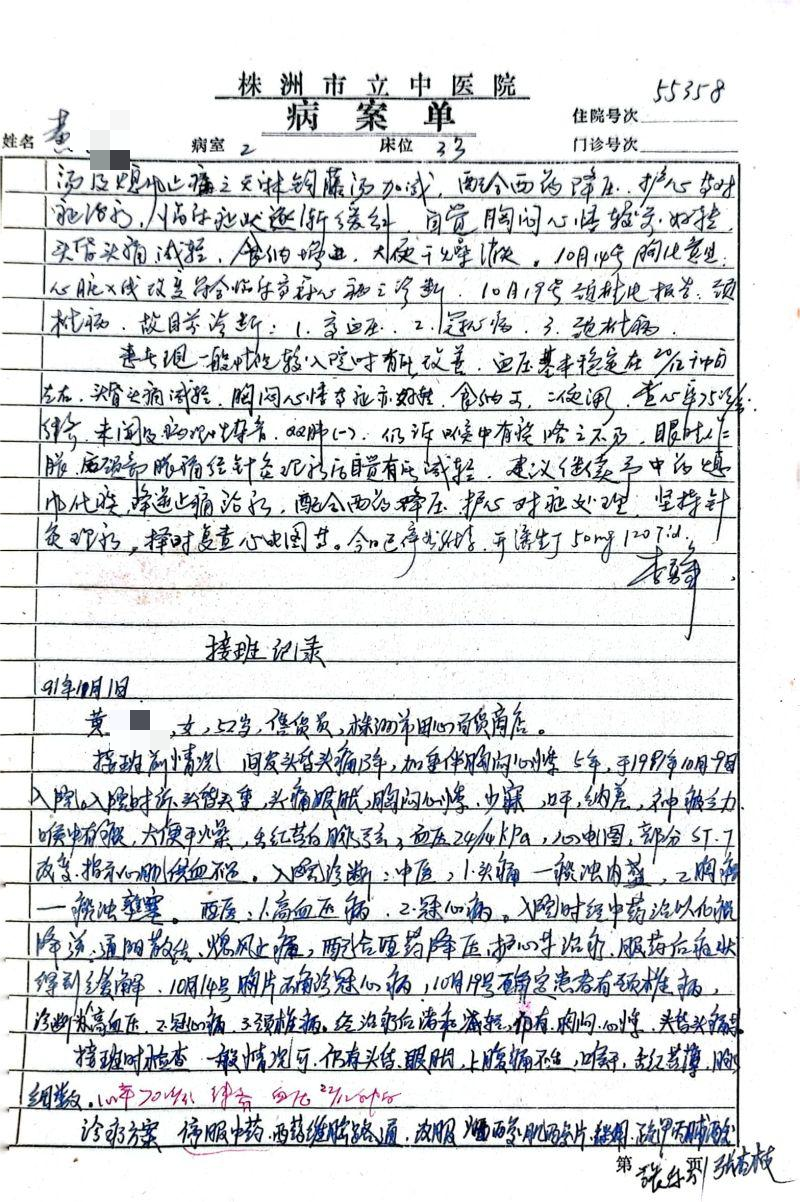 株洲市立中医院
病案单
55358
住院号次
姓名 黄 病室 2 床位 33 门诊号次
汤及熄风止痛之天麻钩藤汤加减，配合西药降压、护心等对
症治疗，临床症状逐渐缓解，自觉胸闷心悸较前好转，
头昏头痛减轻，食纳增进，大便干燥消失。10月14号胸片意见：
心脏X线改变符合临床高冠心病之诊断，10月19号颈椎片报告：颈
椎病。故目前诊断：1.高血压，2.冠心病，3.颈椎病。
患者现一般情况较入院时有所改善，血压基本稳定在20/12
左右，头昏头痛减轻，胸闷心悸等症亦好转，食纳可，二便调，查心率75次/分，
律齐，未闻及病理性杂音，双肺(一)，仍诉喉中有痰咯之不爽，
针灸理疗后自觉有所减轻，建议继续予中药熄
风化痰，降逆止痛治疗，配合西药降压、护心对症处理，坚持针
灸理疗，择时复查心电图等。今日已停 50mg 120 Tid.
接班记录
91年11月1日
黄 ，女，52岁，售货员，株洲市田心百货商店。
接班前情况 间发头昏头痛13年，加重伴胸闷心悸5年，于1991年10月9日
入院。入院时诉：头昏头重，头痛眼胀，胸闷心悸，少寐，口干，纳差，神疲乏力
喉中有痰，大便干燥，舌红苔白脉弦，血压24/14kPa，心电图，部分ST-T
改变，指示心肌供血不足。入院诊断：中医，1.头痛 一痰浊内蕴，2.胸痹
一痰浊壅塞。西医：1.高血压病 2.冠心病。入院时经中药治以化痰
降浊，通阳散结，熄风止痛，配合西药降压，护心等治疗，服药后症状
得到缓解。10月14号胸片确诊冠心病，10月19号确定患者有颈椎病，
诊断为高血压，2.冠心病，3.颈椎病。经治疗后诸症减轻，仍有胸闷，心悸，头昏头痛等。
接班时检查 一般情况可，仍有头昏，眼胀，上腹痛不适，口干，舌红苔薄，脉
细数。心率70次/分 律齐 血压22/12
诊疗方案 停服中药，西药维脑路通，改服
第 页